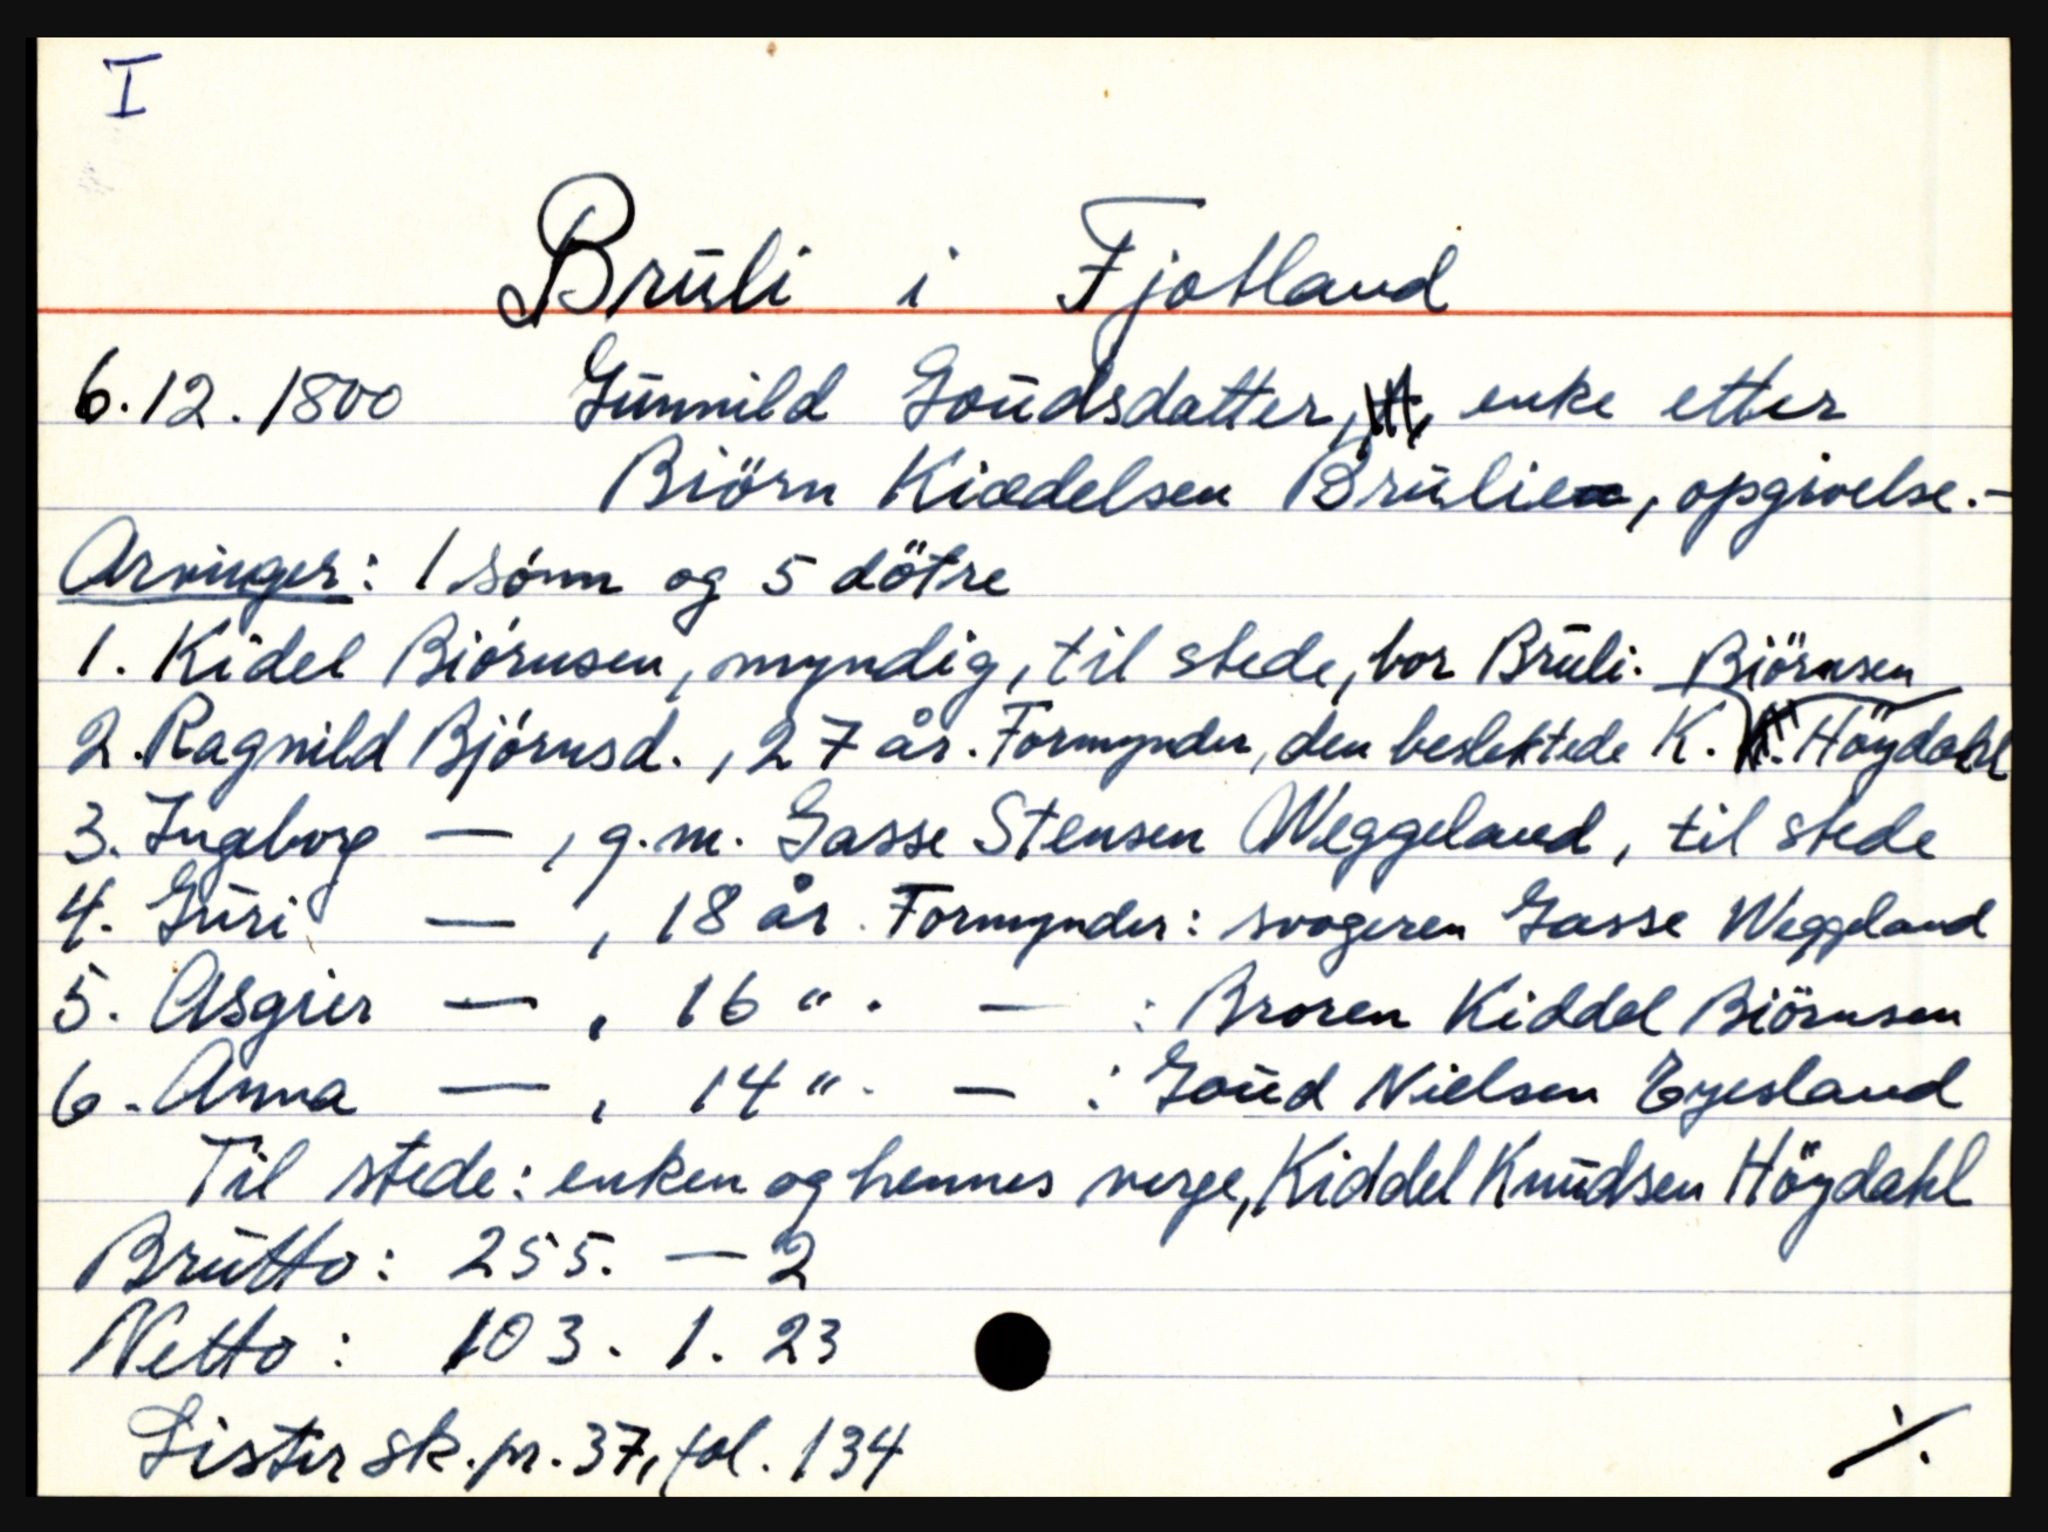 I
Brūli i Fjotland
6.12.1800 Gūnnild Goūdsdatter, enke etter
Biörn Kiædelsen Brūlie, opgivelse.-
Arvinger: 1 sønn og 5 dötre
1. Kidel Biørnsen, myndig, til stede, bor Brūli. Björnsen
2. Ragnild Bjørnsd., 27 år. Formynder, den beslektede K. Höydahl
3. Ingeborg — , g.m. Gasse Stensen Weggeland, til stede
4. Gūri — , 18 år. Formynder: svogeren Gasse Weggeland
5. Asgier — , 16 " . — : Broren Kiddel Biörnsen
6. Anna — , 14 " . — : Goūd Nielsen Eyesland
Til stede: enken og hennes verge, Kiddel Knūdsen Höydahl
Brūtto: 255. — 2
Netto: 103. 1. 23
Lister sk.pr. 37, fol. 134
./.